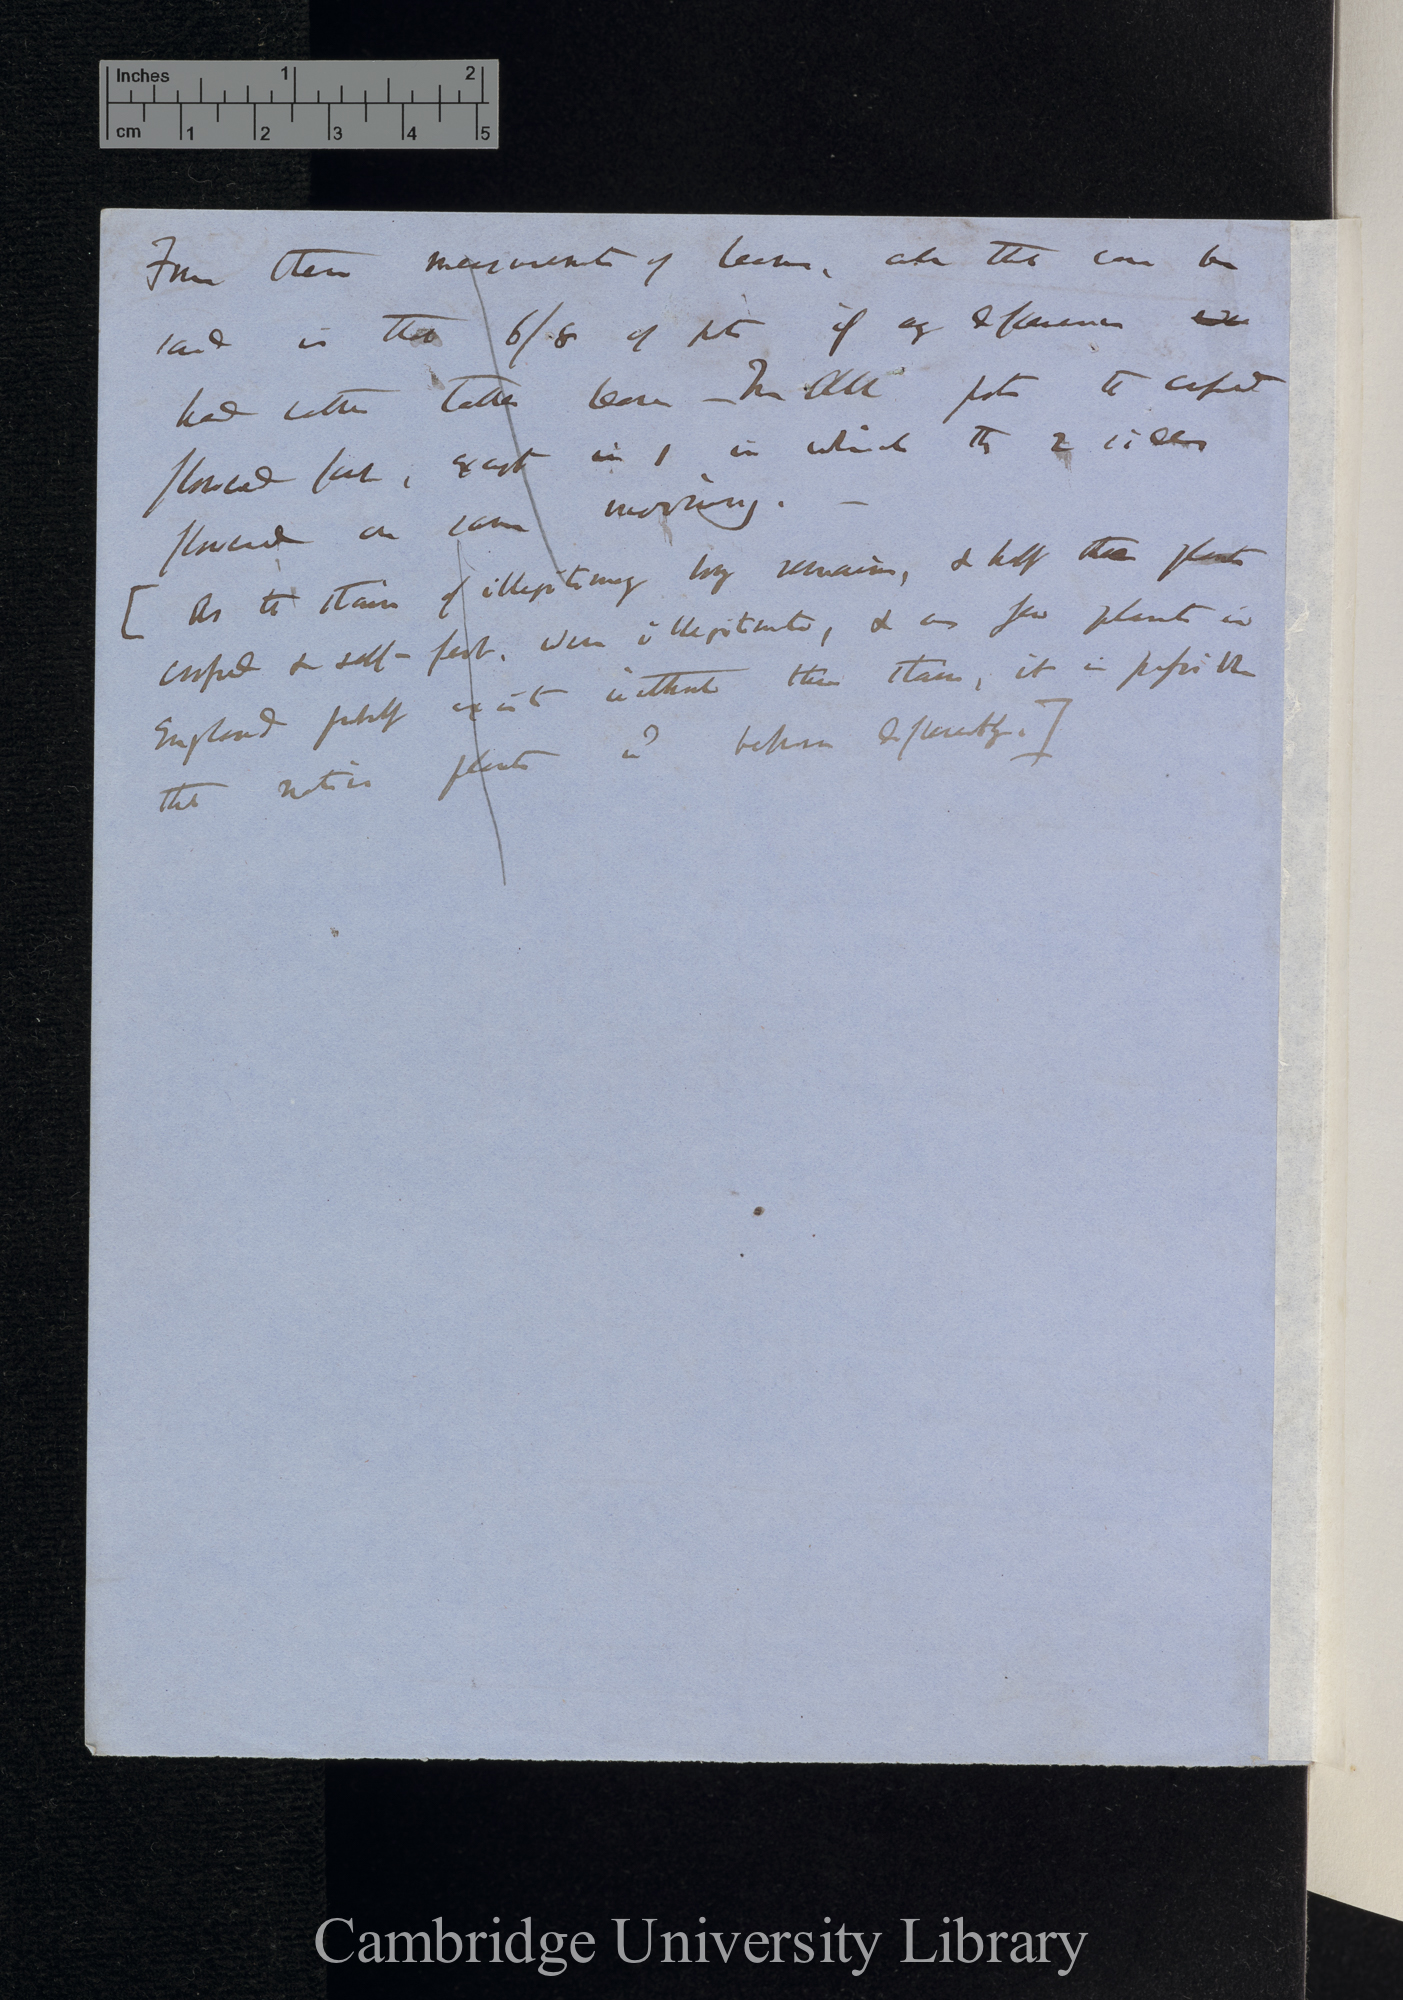 Inches 1 2
cm 1 2 3 4 5
From these measurements of leaves, all that can be
said is that 6/8 of pots if any difference
had rather taller leaves — In all pots the crossed
flowered first, except in 1 in which the 2 sides
flowered on same morning. —
[ As the stain of illegitimacy long remains, & half the plants
crossed & self-fert. were illegitimate, & as few plants in
England probably exist without this stain, it is possible
that native plants wd behave differently.]
Cambridge University Library